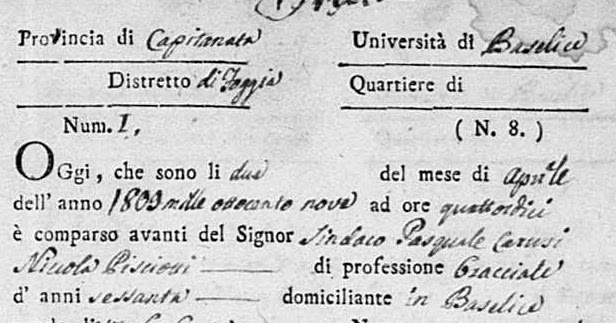 Provincia di Capitanata
Università di Baselice
Distretto di Foggia
Quartiere di
Num. I,
( N. 8. )
OGgi, che sono li due del mese di aprile
dell' anno 1809 mille ottocento nove ad ore quattordici
è comparso avanti del Signor Sindaco Pasquale Carusi
Niccola Piscioni di professione bracciale
d' anni sessanta domiciliante in Baselice